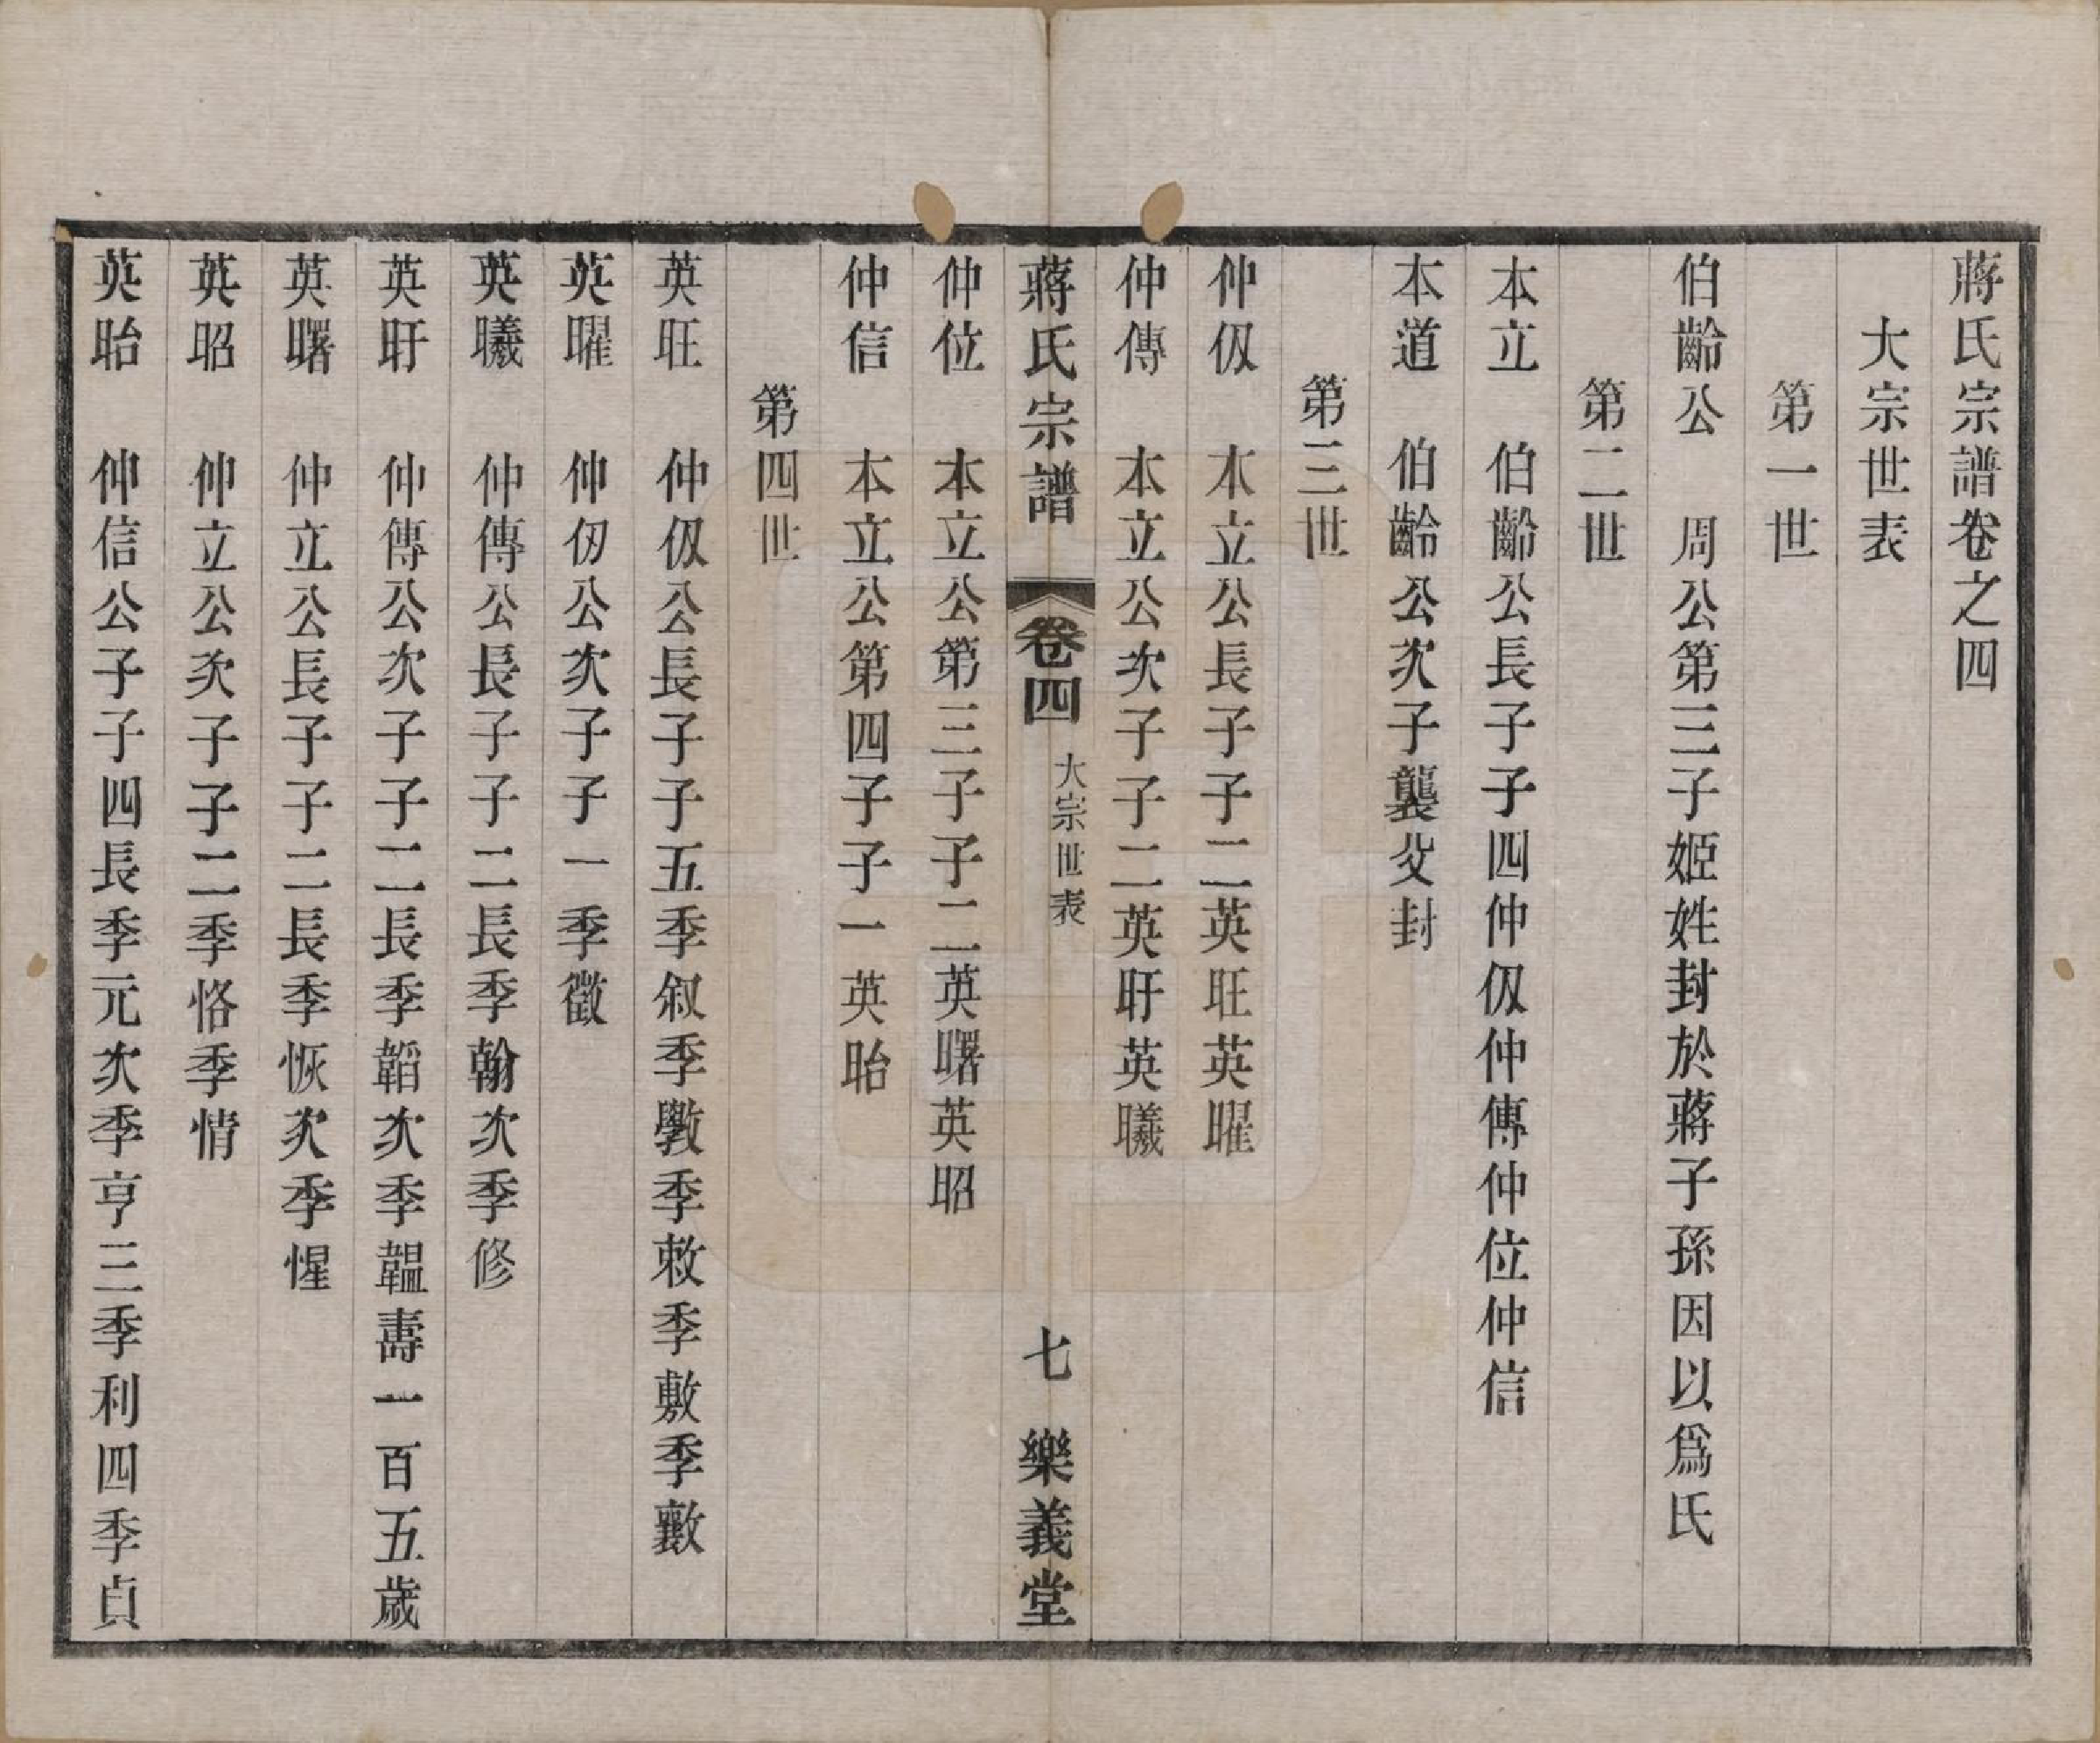 蔣氏宗譜卷之四
大宗世表
第一世
伯齡公　周公第三子姬姓封於蔣子孫因以爲氏
第二世
本立　伯齡公長子子四仲伋仲傳仲位仲信
本道　伯齡公次子襲父封
第三世
仲伋　本立公長子子二英旺英曜
仲傳　本立公次子子二英盱英曦
蔣氏宗譜　卷四　大宗世表　七　樂義堂
仲位　本立公第三子子二英曙英昭
仲信　本立公第四子子一英眙
第四世
英旺　仲伋公長子子五季叙季斆季敕季敷季
英曜　仲伋公次子子一季徵
英曦　仲傳公長子子二長季翰次季修
英盱　仲傳公次子子二長季韜次季韞壽一百五歲
英曙　仲立公長子子二長季恢次季惺
英昭　仲立公次子子二季恪季情
英眙　仲信公子子四長季元次季亨三季利四季貞